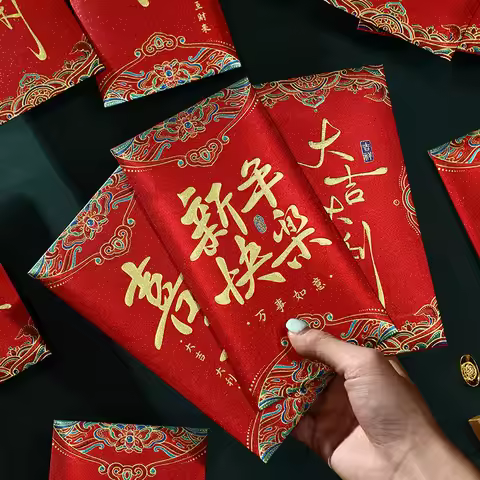 新年
快樂
万事如意
大吉大利
吉祥
大吉大利